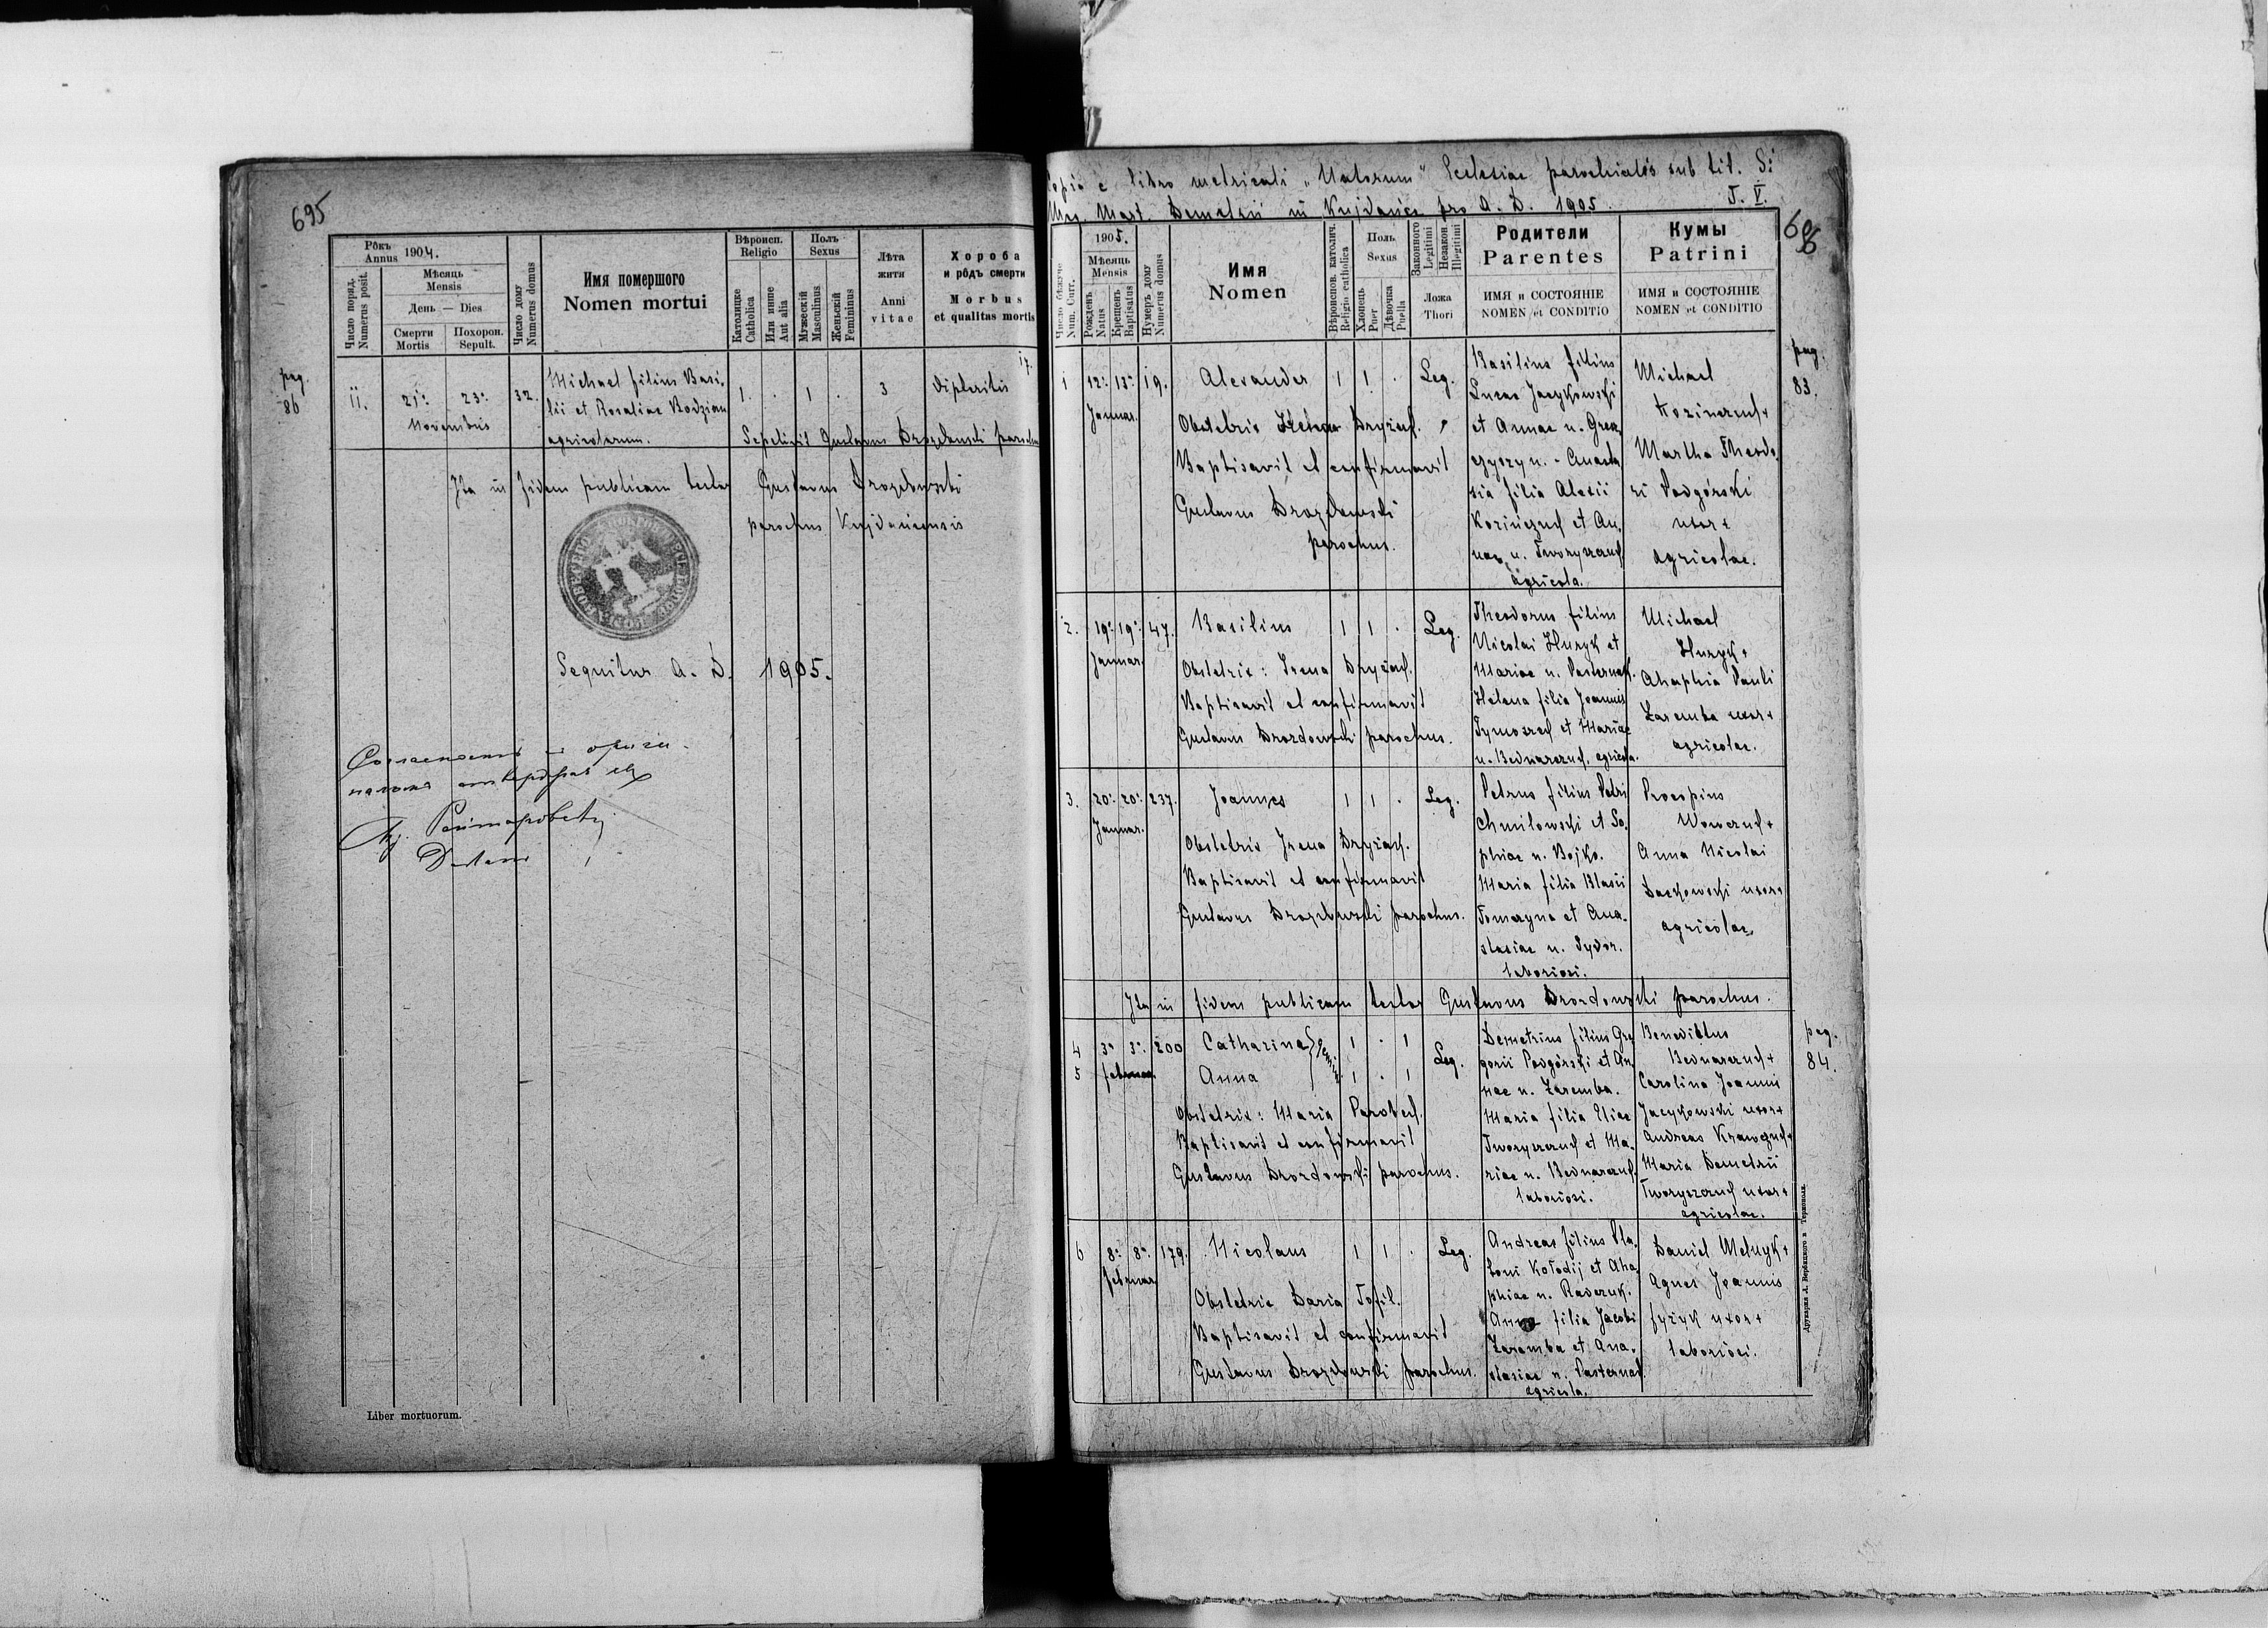 695
Рôкъ
Annus 1904.
Число поряд.
Numerus posit.
Мѣсяць
Mensis
День — Dies
Смерти
Mortis
Похорон.
Sepult.
Число дому
Numerus domus
Имя помершого
Nomen mortui
Вѣроисп.
Religio
Католицке
Catholica
Или инше
Aut alia
Полъ
Sexus
Мужескій
Masculinus
Женьскій
Femininus
Лѣта
житя
Anni
vitae
Хороба
и рôдъ смерти
Morbus
et qualitas mortis
pag.
86
11. 21. 23. 32.
Novembris
Michael filius Basi-
lii et Rosaliae Bodzian
agricolarum.
1 . 1 . 3 Dipteritis
Sepelivit Gustavus Drozdowski parochus
Ita in fidem publicam testor Gustavus Drozdowski
parochus Kujdańcensis
Sequitur A. D. 1905.
Liber mortuorum.
Copia e libro metricali „Natorum" Ecclesiae parochialis sub tit. S.
Mart. Demetrii in Kujdańce pro A. D. 1905. T. V.
606
Число бѣжуче
Num. Curr.
1905.
Мѣсяць
Mensis
Рожденъ
Natus
Крещенъ
Baptisatus
Нумеръ дому
Numerus domus
Имя
Nomen
Вѣроисповъ. католич.
Religio catholica
Полъ
Sexus
Хлопець
Puer
Дѣвочка
Puella
Законного
Legitimi
Незакон.
Illegitimi
Ложа
Thori
Родители
Parentes
ИМЯ и СОСТОЯНІЕ
NOMEN et CONDITIO
Кумы
Patrini
ИМЯ и СОСТОЯНІЕ
NOMEN et CONDITIO
pag.
83.
1 12. 13. 19.
Januar.
Alexander 1 1 . Leg.
Obstetrix Dryżach.
Baptisavit et confirmavit
Gustavus Drozdowski
parochus.
Basilius filius
Lucae Jacykowski
et Annae n.
Anasta-
sia filia Alexii
Kozińczuch et An-
nae n. Tworyszczuch
agricola.
Michael
Kozinczuch +
Martha Theodo-
ri Podgórski
uxor +
agricolae.
2. 19. 19. 47.
Januar.
Basilius 1 1 . Leg.
Obstetrix: Irena Dryżach.
Baptisavit et confirmavit
Gustavus Drozdowski parochus.
Theodorus filius
Nicolai Huzyk et
Mariae n. Pasternak.
Helena filia Joannis
Tymoszczuk et Mariae
n. Bednarczuch, agricola.
Michael
Huzyk +
Ahaphia Pauli
Zaremba uxor +
agricolae.
3. 20. 20. 237.
Januar.
Joannes 1 1 . Leg.
Obstetrix Irena Dryżach.
Baptisavit et confirmavit
Gustavus Drozdowski parochus.
Petrus filius Petri
Chmilowski et So-
phiae n. Bojko.
Maria filia Blasii
Tomczyna et Ana-
stasiae n. Sydor.
laboriosi.
Procopius
Wowczuch +
Anna Nicolai
Dackowski uxor +
agricolae.
Ita in fidem publicam testor Gustavus Drozdowski parochus.
pag.
84.
4 3. 3. 200
5 Februar.
Catharina 1 . 1
Anna 1 . 1
Leg.
Obstetrix: Maria Parobech.
Baptisavit et confirmavit
Gustavus Drozdowski parochus.
Demetrius filius Gre-
gorii Podgórski et An-
nae n. Zaremba.
Maria filia Eliae
Tworyszczuch et Ma-
riae n. Bednarczuch
laboriosi.
Benedictus
Bednarczuch +
Carolina Joannis
Jacykowski uxor +
Andreas Krawczuch +
Maria Demetrii
Tworyszczuch uxor +
agricolae.
6 8. 8. 179.
Februar.
Nicolaus 1 1 . Leg.
Obstetrix Daria Tofil.
Baptisavit et confirmavit
Gustavus Drozdowski parochus.
Andreas filius Pla-
toni Kołodij et Aha-
phiae n. Raderuk.
Anna filia Jacobi
Zaremba et Ana-
stasiae n. Pasternak
agricola.
Daniel Melnyk +
Agnes Joannis
Fyżyk uxor +
laboriosi.